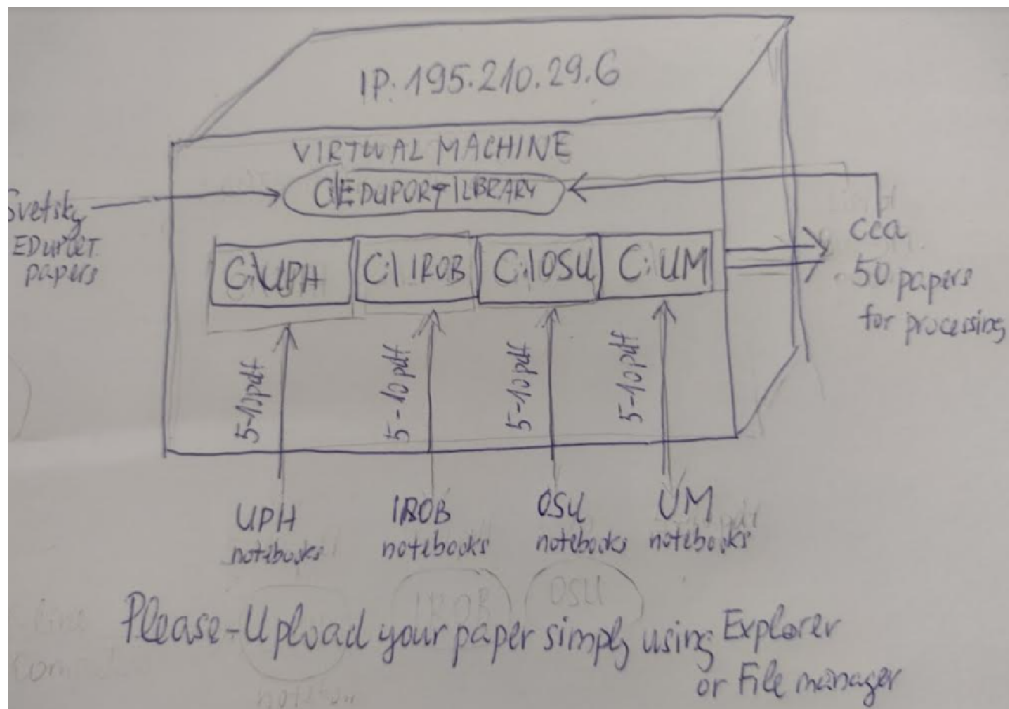 IP: 195.210.29.6
VIRTUAL MACHINE
C\EDUPORT\LIBRARY
Svetsky
papers
C:\UPH
C:\IROB
C:\OSU
C:\UM
cca
50 papers
for processing
5-10pdf
5-10pdf
5-10pdf
5-10pdf
UPH
notebooks
IROB
notebooks
OSU
notebooks
UM
notebooks
Please-Upload your paper simply using Explorer
or File manager
IROB
OSU